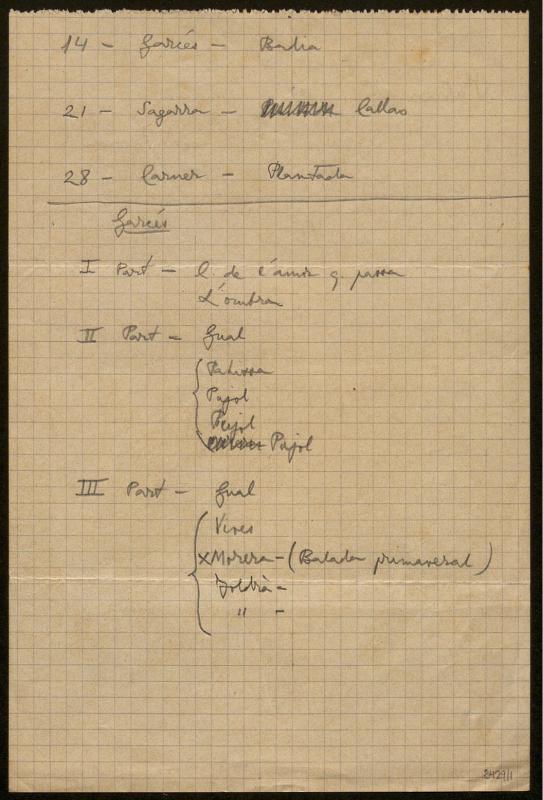 14 - Garcés - Badia
21 - Sagarra - Callao
28 - Carner - Planttada
Garcés
I Part - C. de l'amor q. passa
L'ombra
II Part - Gual
Pahissa
Pujol
Pujol
Pujol
III Part - Gual
Vives
x Morera - (Balada primaveral)
Toldrà -
" -
2429/1